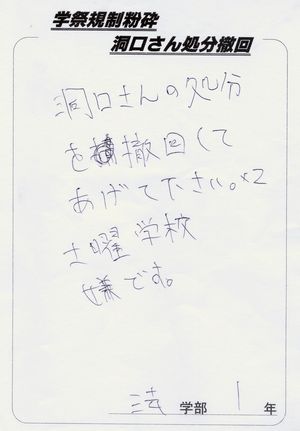 学祭規制粉砕
洞口さん処分撤回
洞口さんの処分
を撤回くて
あげて下さい。×2
土曜学校
嫌です。
法 学部 1 年